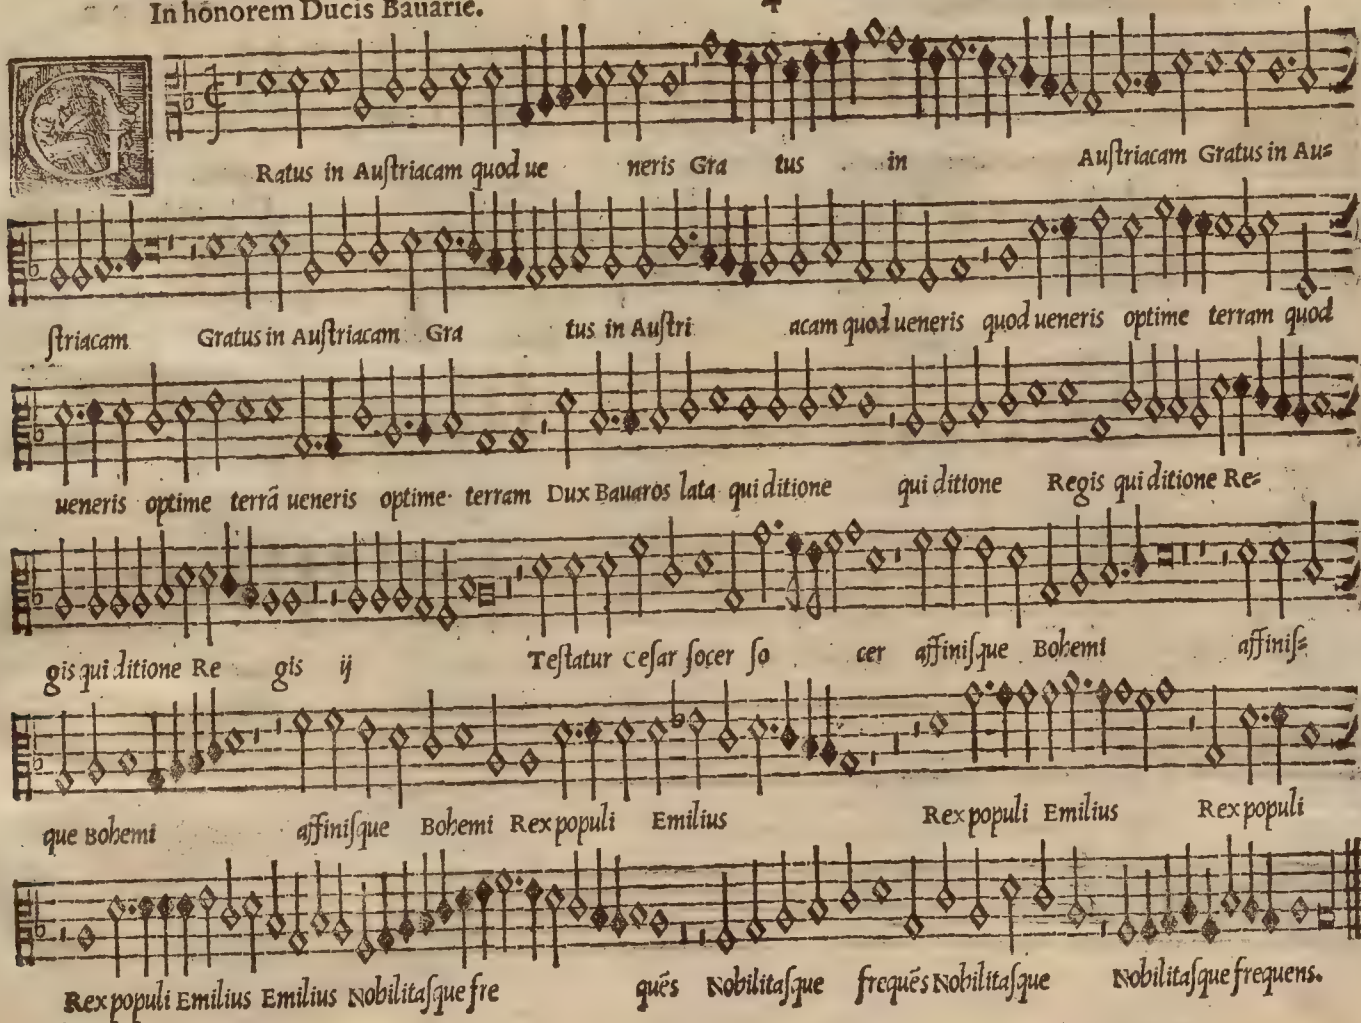 In honorem Ducis Bauarie.
GRatus in Auſtriacam quod ue neris Gra tus in Auſtriacam Gratus in Au=
ſtriacam Gratus in Auſtriacam Gra tus in Auſtri acam quod ueneris quod ueneris optime terram quod
ueneris optime terrã ueneris optime terram Dux Bauaros lata qui ditione qui ditione Regis qui ditione Re=
gis qui ditione Re gis ij Teſtatur Ceſar ſocer ſo cer affiniſque Bohemi affiniſ=
que Bohemi affiniſque Bohemi Rex populi Emilius Rex populi Emilius Rex populi
Rex populi Emilius Emilius Nobilitaſque fre quẽs Nobilitaſque frequẽs Nobilitaſque Nobilitaſque frequens.